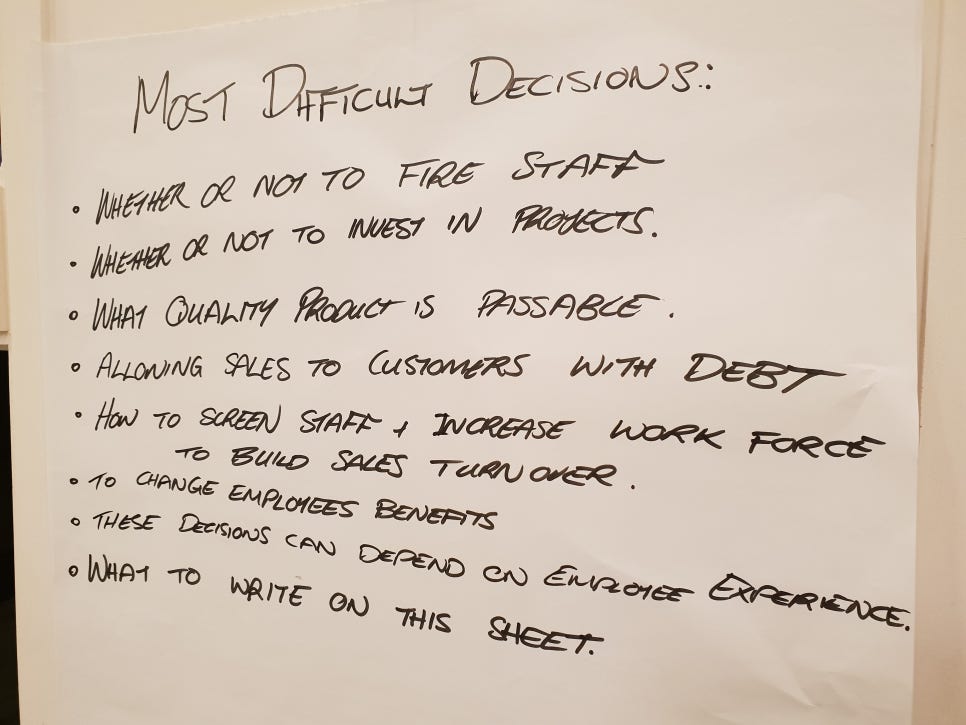 MOST DIFFICULT DECISIONS:
• WHETHER OR NOT TO FIRE STAFF
• WHETHER OR NOT TO INVEST IN PROJECTS.
• WHAT QUALITY PRODUCT IS PASSABLE.
• ALLOWING SALES TO CUSTOMERS WITH DEBT
• HOW TO SCREEN STAFF + INCREASE WORK FORCE
TO BUILD SALES TURNOVER.
• TO CHANGE EMPLOYEES BENEFITS
• THESE DECISIONS CAN DEPEND ON EMPLOYEE EXPERIENCE.
• WHAT TO WRITE ON THIS SHEET.